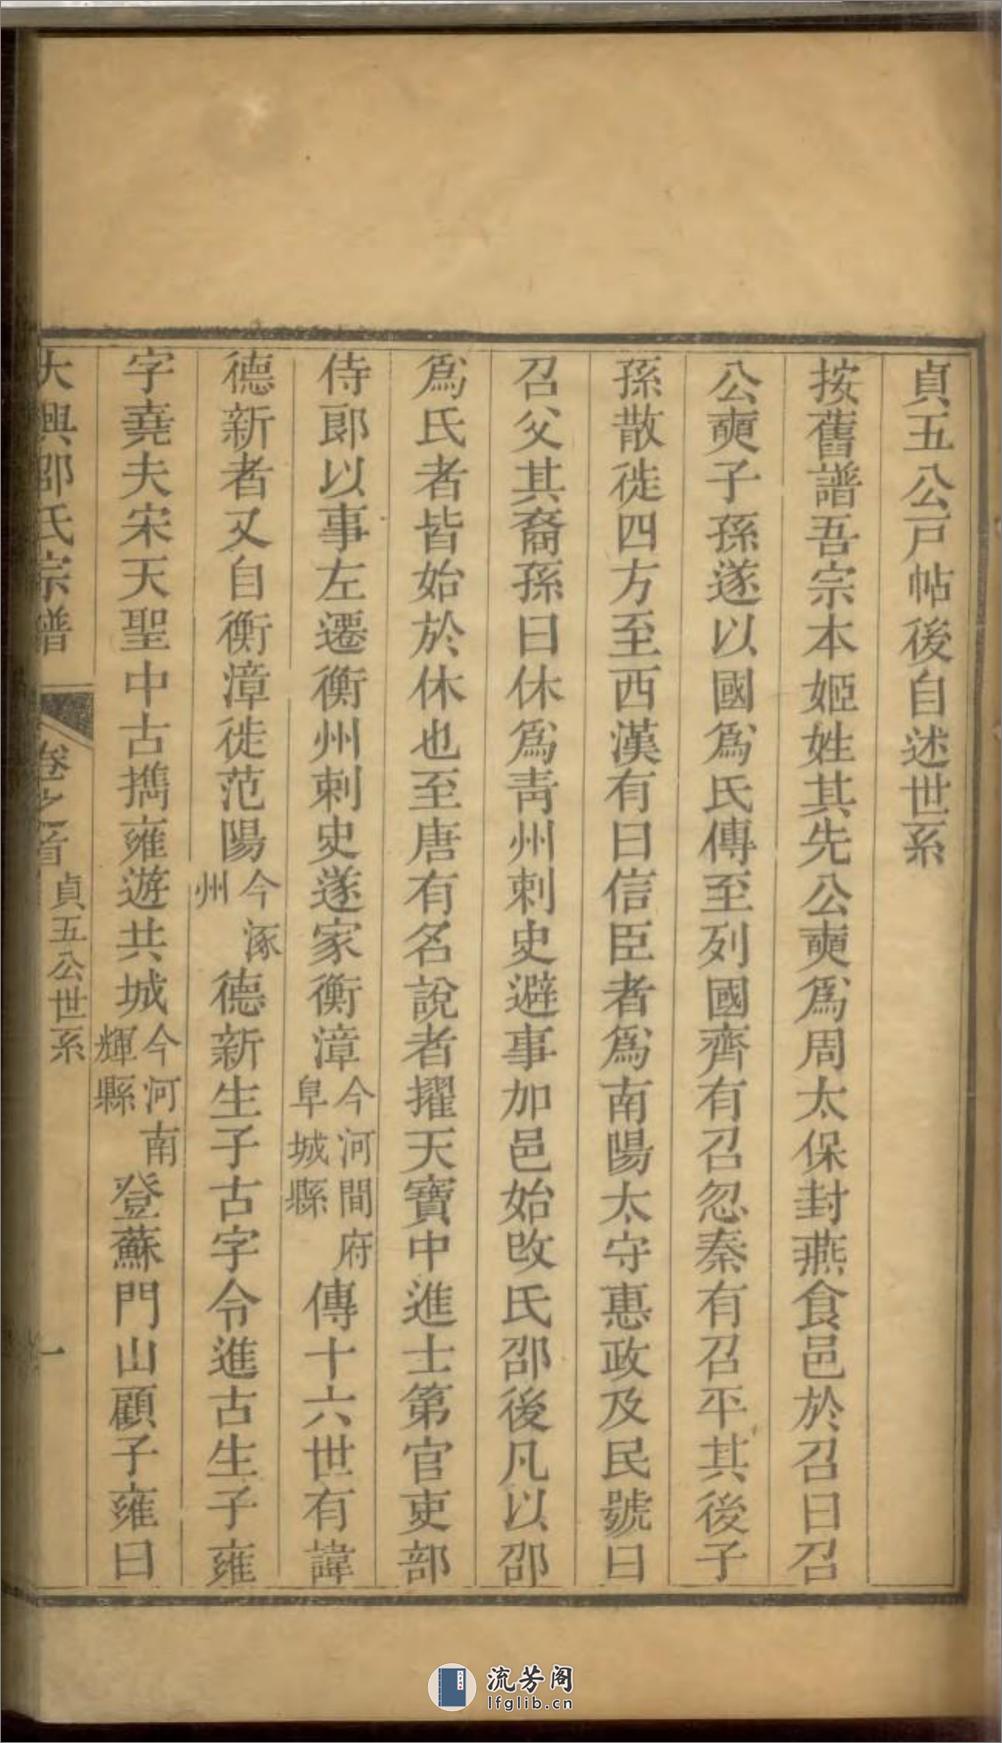 貞五公戸帖後自述世系
按舊譜吾宗本姬姓其先公奭爲周太保封燕食邑於召曰召
公奭子孫遂以國爲氏傳至列國齊有召忽秦有召平其後子
孫散徙四方至西漢有曰信臣者爲南陽太守惠政及民號曰
召父其裔孫曰休爲靑州刺史避事加邑始改氏邵後凡以邵
爲氏者皆始於休也至唐有名說者擢天寶中進士第官吏部
侍郞以事左遷衡州刺史遂家衡漳今河間府阜城縣傳十六世有諱
德新者又自衡漳徙范陽今涿州德新生子古字令進古生子雍
字堯夫宋天聖中古攜雍遊共城今河南輝縣登蘇門山顧子雍曰
大興邵氏宗譜
卷之首
貞五公世系
一
流芳阁
lfglib.cn